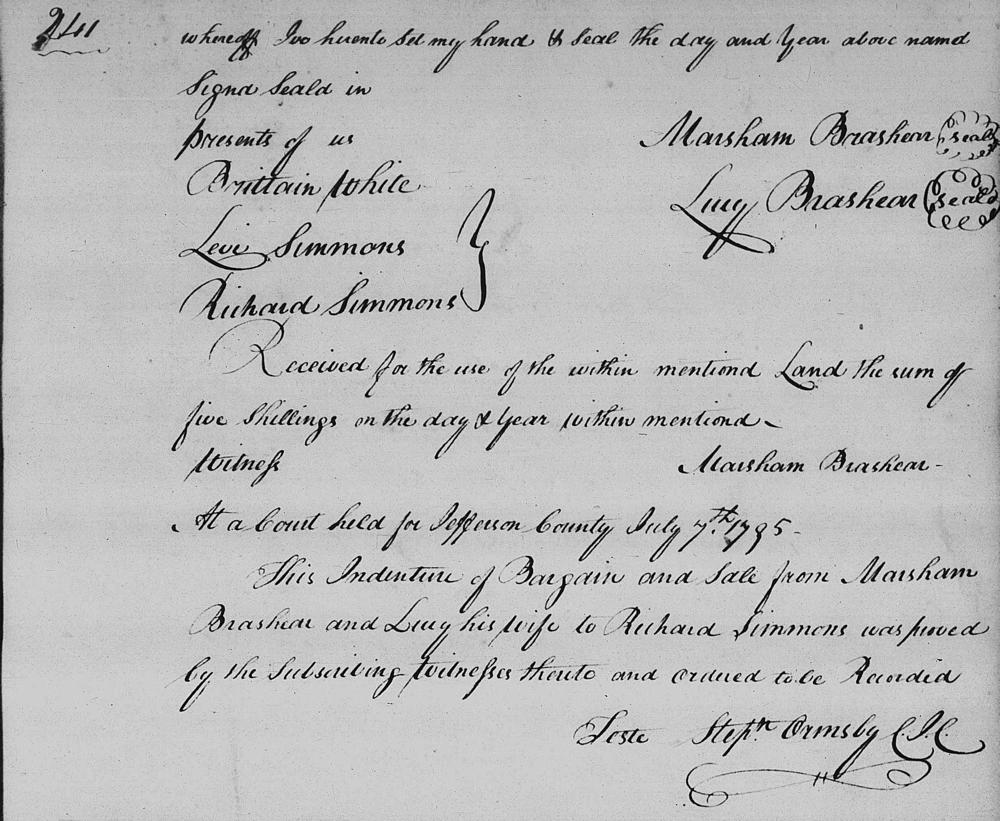 241
whereoff I do hereunto Set my hand & Seal the day and Year above named
Signd Seald in
presents of us
Marsham Brashear seal
Brittain White
Lucy Brashear seal
Levi Simmons
Richard Simmons
Received for the use of the within mentiond Land the sum of
five Shillings on the day & Year within mentiond
Witness
Marsham Brashear
At a Court held for Jefferson County July 7th 1795
This Indenture of Bargain and Sale from Marsham
Brashear and Lucy his Wife to Richard Simmons was proved
by the Subscribing Witnesses thereto and ordered to be Recorded
Teste Stepn Ormsby C.J.C